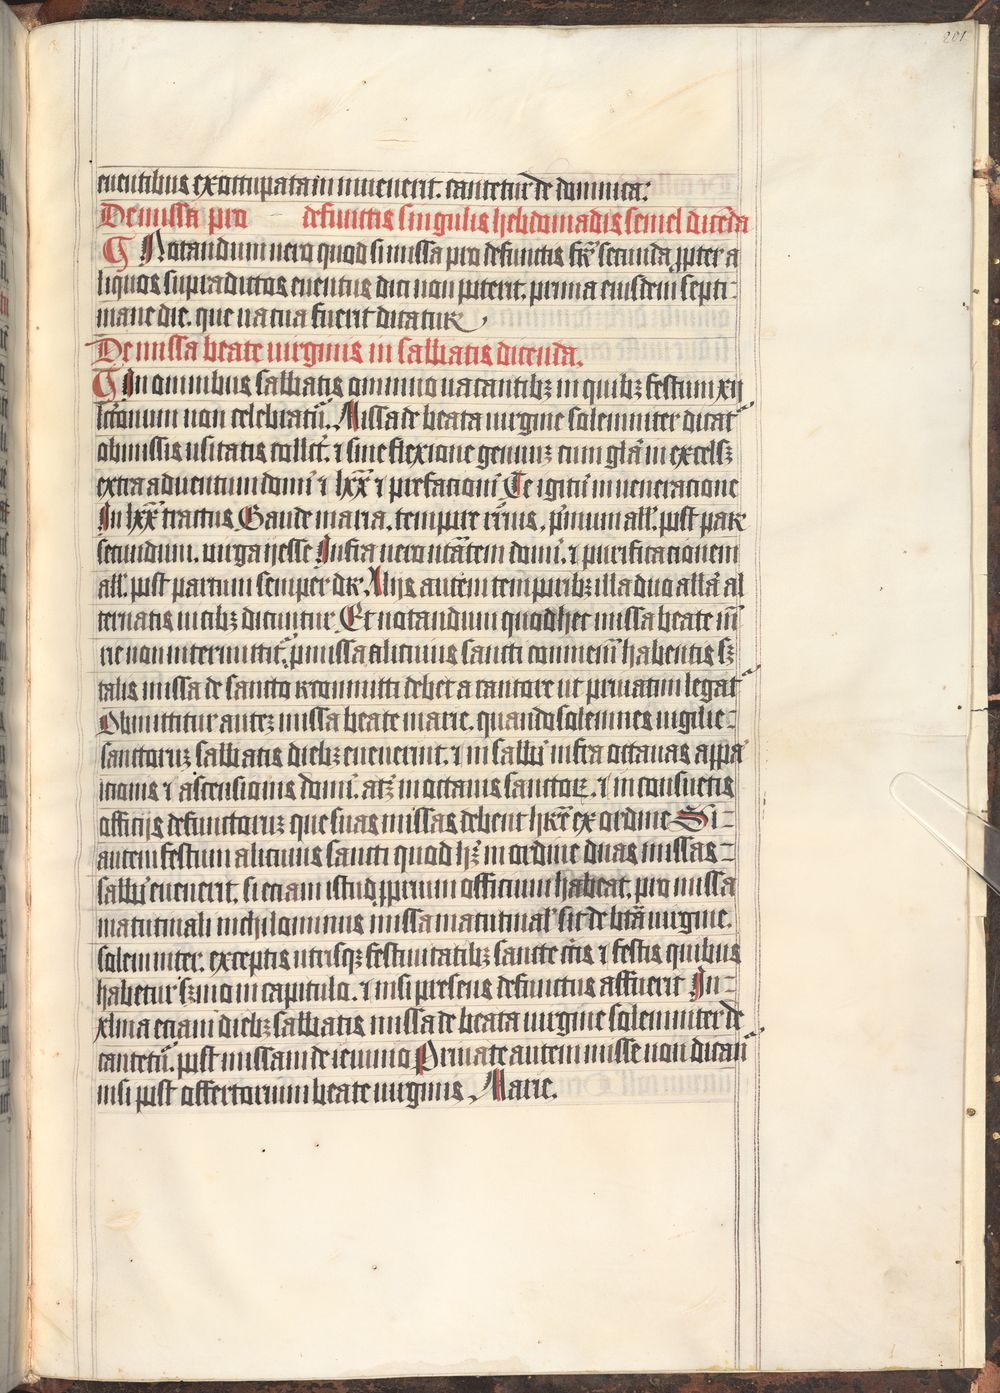 201
euentibus exoccupatam inuenerit. cantetur de dominica:
De missa pro defunctis singulis hebdomadis semel dicēda
Notandum uero quod si missa pro defunctis fr̄ secunda ꝓpter a
liquos supradictos euentus dici non poterit. prima eiusdem septi-
mane die. que uacua fuerit dicatur
De missa beate uirginis in sabbatis dicenda.
In omnibus sabbatis omnino uacantibꝫ in quibꝫ festum xij
lcōnum non celebrat᷑. Missa de beata uirgine solemniter dicat᷑
obmissis usitatis collct̄. ⁊ sine flexione genuuꝫ cum glā in excelsꝫ
extra aduentum domī ⁊ lxx̄ ⁊ prefacioni Te igit᷑ in ueneracione
In lxx̄ tractus Gaude maria. tempore r̄r̄nis. p̄mum all̄. post par
secundum. uirga iesse Infra uero nt̄atem domī. ⁊ purificacionem
all̄. post partum semper dr̄. Alijs autem temporibꝫ illa duo allā al
ternatis uicibꝫ dicuntur Et notandum quod hec missa beate m̄
rie non intermittit᷑. ꝓ missa alicuius sancti commem̄ habentis sꝫ
talis missa de sancto recommitti debet a cantore ut priuatim legat᷑
Obmittitur autēꝫ missa beate marie. quando solemnes uigilie
sanctoruꝫ sabbatis diebꝫ euenerint. ⁊ in sabb̄ infra octauas appa
icionis ⁊ ascensionis domī. atꝫ in octauis sanctoꝝ. ⁊ in consuetis
officijs defunctoruꝫ que suas missas debent hr̄e ex ordine Si-
autem festum alicuius sancti quod hꝫ in ordine duas missas
sabb̄ euenerit. si eciam istud ꝓprium officium habeat. pro missa
matutinali nichilominus missa matutinal̄ sit de btā uirgine.
solemniter. exceptis utrisqꝫ festiuitatibꝫ sancte cr̄cis ⁊ festis quibus
habetur s̄mo in capitulo. ⁊ nisi presens defunctus affuerit In-
xlma eciam diebꝫ sabbatis missa de beata uirgine solemniter de
cantet᷑. post missam de ieiunio Priuate autem misse non dican᷑
nisi post offertorium beate uirginis Marie.